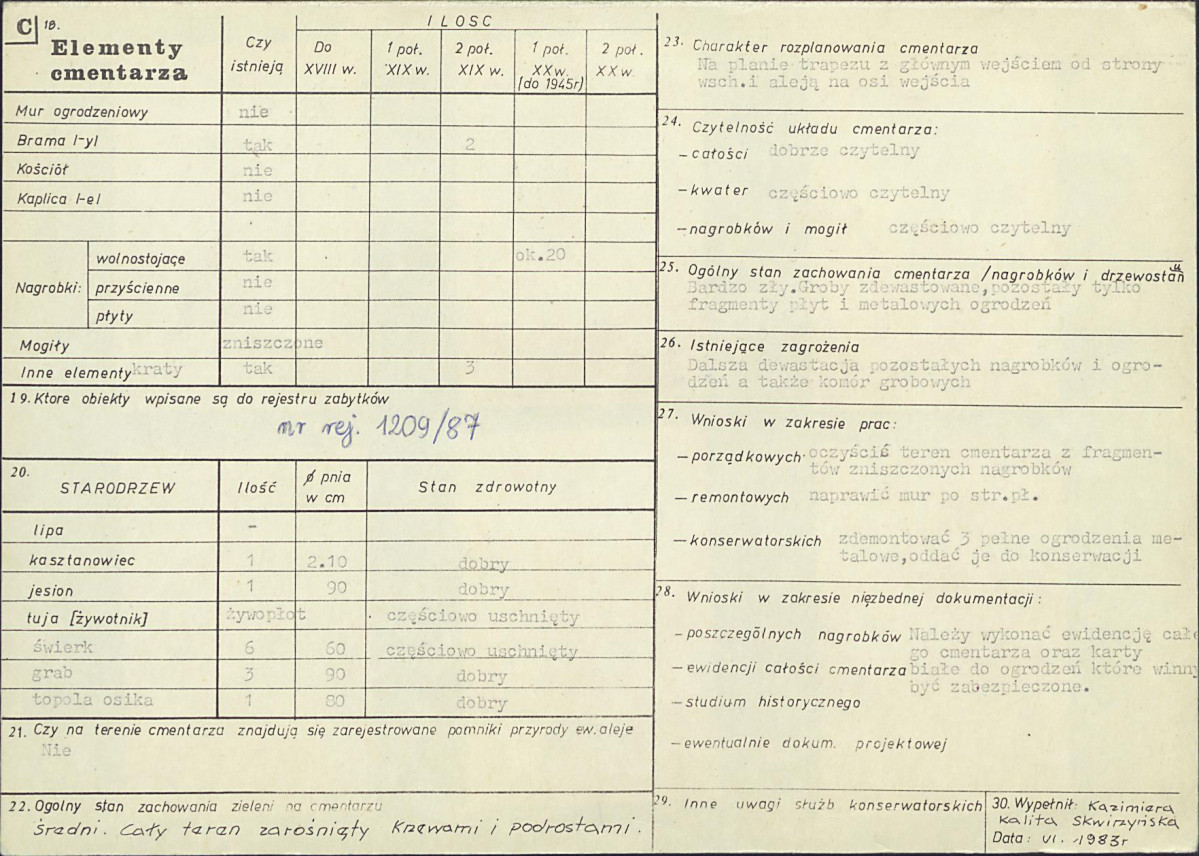 C 18.
Elementy
cmentarza
Czy
istnieją
ILOSC
Do
XVIII w.
1 poł.
XIX w.
2 poł.
XIX w.
1 poł.
XX w.
(do 1945r)
2 poł.
XX w.
Mur ogrodzeniowy nie
Brama /-y/ tak 2
Kościół nie
Kaplica /-e/ nie
Nagrobki:
wolnostojące tak ok.20
przyścienne nie
płyty nie
Mogiły zniszczone
Inne elementy kraty tak 3
19. Ktore obiekty wpisane są do rejestru zabytków
nr rej. 1209/87
20.
STARODRZEW Ilość ø pnia
w cm Stan zdrowotny
lipa -
kasztanowiec 1 2.10 dobry
jesion 1 90 dobry
tuja [żywotnik] żywopłot częściowo uschnięty
świerk 6 60 częściowo uschnięty
grab 3 90 dobry
topola osika 1 80 dobry
21. Czy na terenie cmentarza znajdują się zarejestrowane pomniki przyrody ew. aleje
Nie
22. Ogolny stan zachowania zieleni na cmentarzu
średni. Cały teren zarośnięty krzewami i podrostami.
23. Charakter rozplanowania cmentarza
Na planie trapezu z głównym wejściem od strony
wsch.i aleją na osi wejścia
24. Czytelność układu cmentarza:
- całości dobrze czytelny
- kwater częściowo czytelny
- nagrobków i mogił częściowo czytelny
25. Ogólny stan zachowania cmentarza /nagrobków i drzewostanu
Bardzo zły.Groby zdewastowane,pozostały tylko
fragmenty płyt i metalowych ogrodzeń
26. Istniejące zagrożenia
Dalsza dewastacja pozostałych nagrobków i ogro-
dzeń a także komór grobowych
27. Wnioski w zakresie prac:
- porządkowych oczyścić teren cmentarza z fragmen-
tów zniszczonych nagrobków
- remontowych naprawić mur po str.pł.
- konserwatorskich zdemontować 3 pełne ogrodzenia me-
talowe,oddać je do konserwacji
28. Wnioski w zakresie nięzbednej dokumentacji:
- poszczególnych nagrobków Należy wykonać ewidencję całe
go cmentarza oraz karty
- ewidencji całości cmentarza białe do ogrodzeń które winny
być zabezpieczone.
- studium historycznego
- ewentualnie dokum. projektowej
29. Inne uwagi służb konserwatorskich
30. Wypełnił: Kazimiera
Kalita Skwirzyńska
Data: VI. 1983r